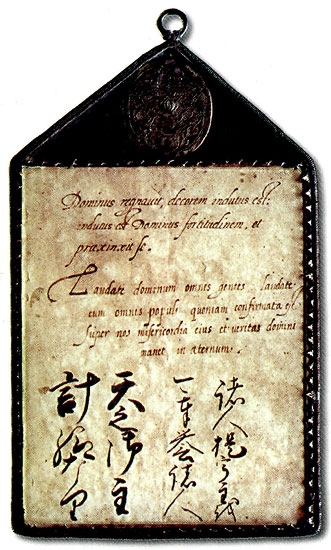 Dominus regnauit, decorem indutus est:
indutus est Dominus fortitudinem, et
præcinxit se.
Laudate dominum omnes gentes laudate
eum omnes populi quoniam confirmata est
super nos misericordia eius et veritas domini
manet in æternum.
諸人
諸人
天之御主
計